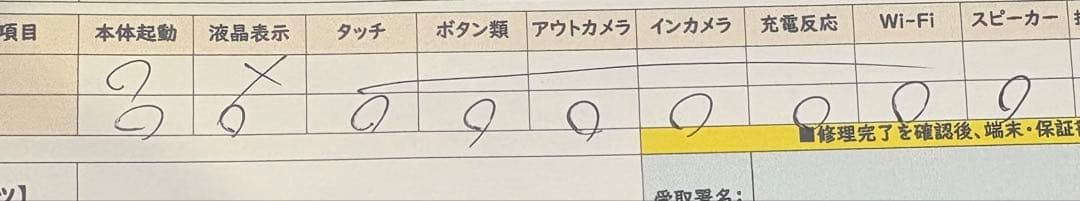 項目 本体起動 液晶表示 タッチ ボタン類 アウトカメラ インカメラ 充電反応 Wi-Fi スピーカー
○ ×
○ ○ ○ ○ ○ ○ ○ ○ ○
■修理完了を確認後、端末・保証
受取署名: